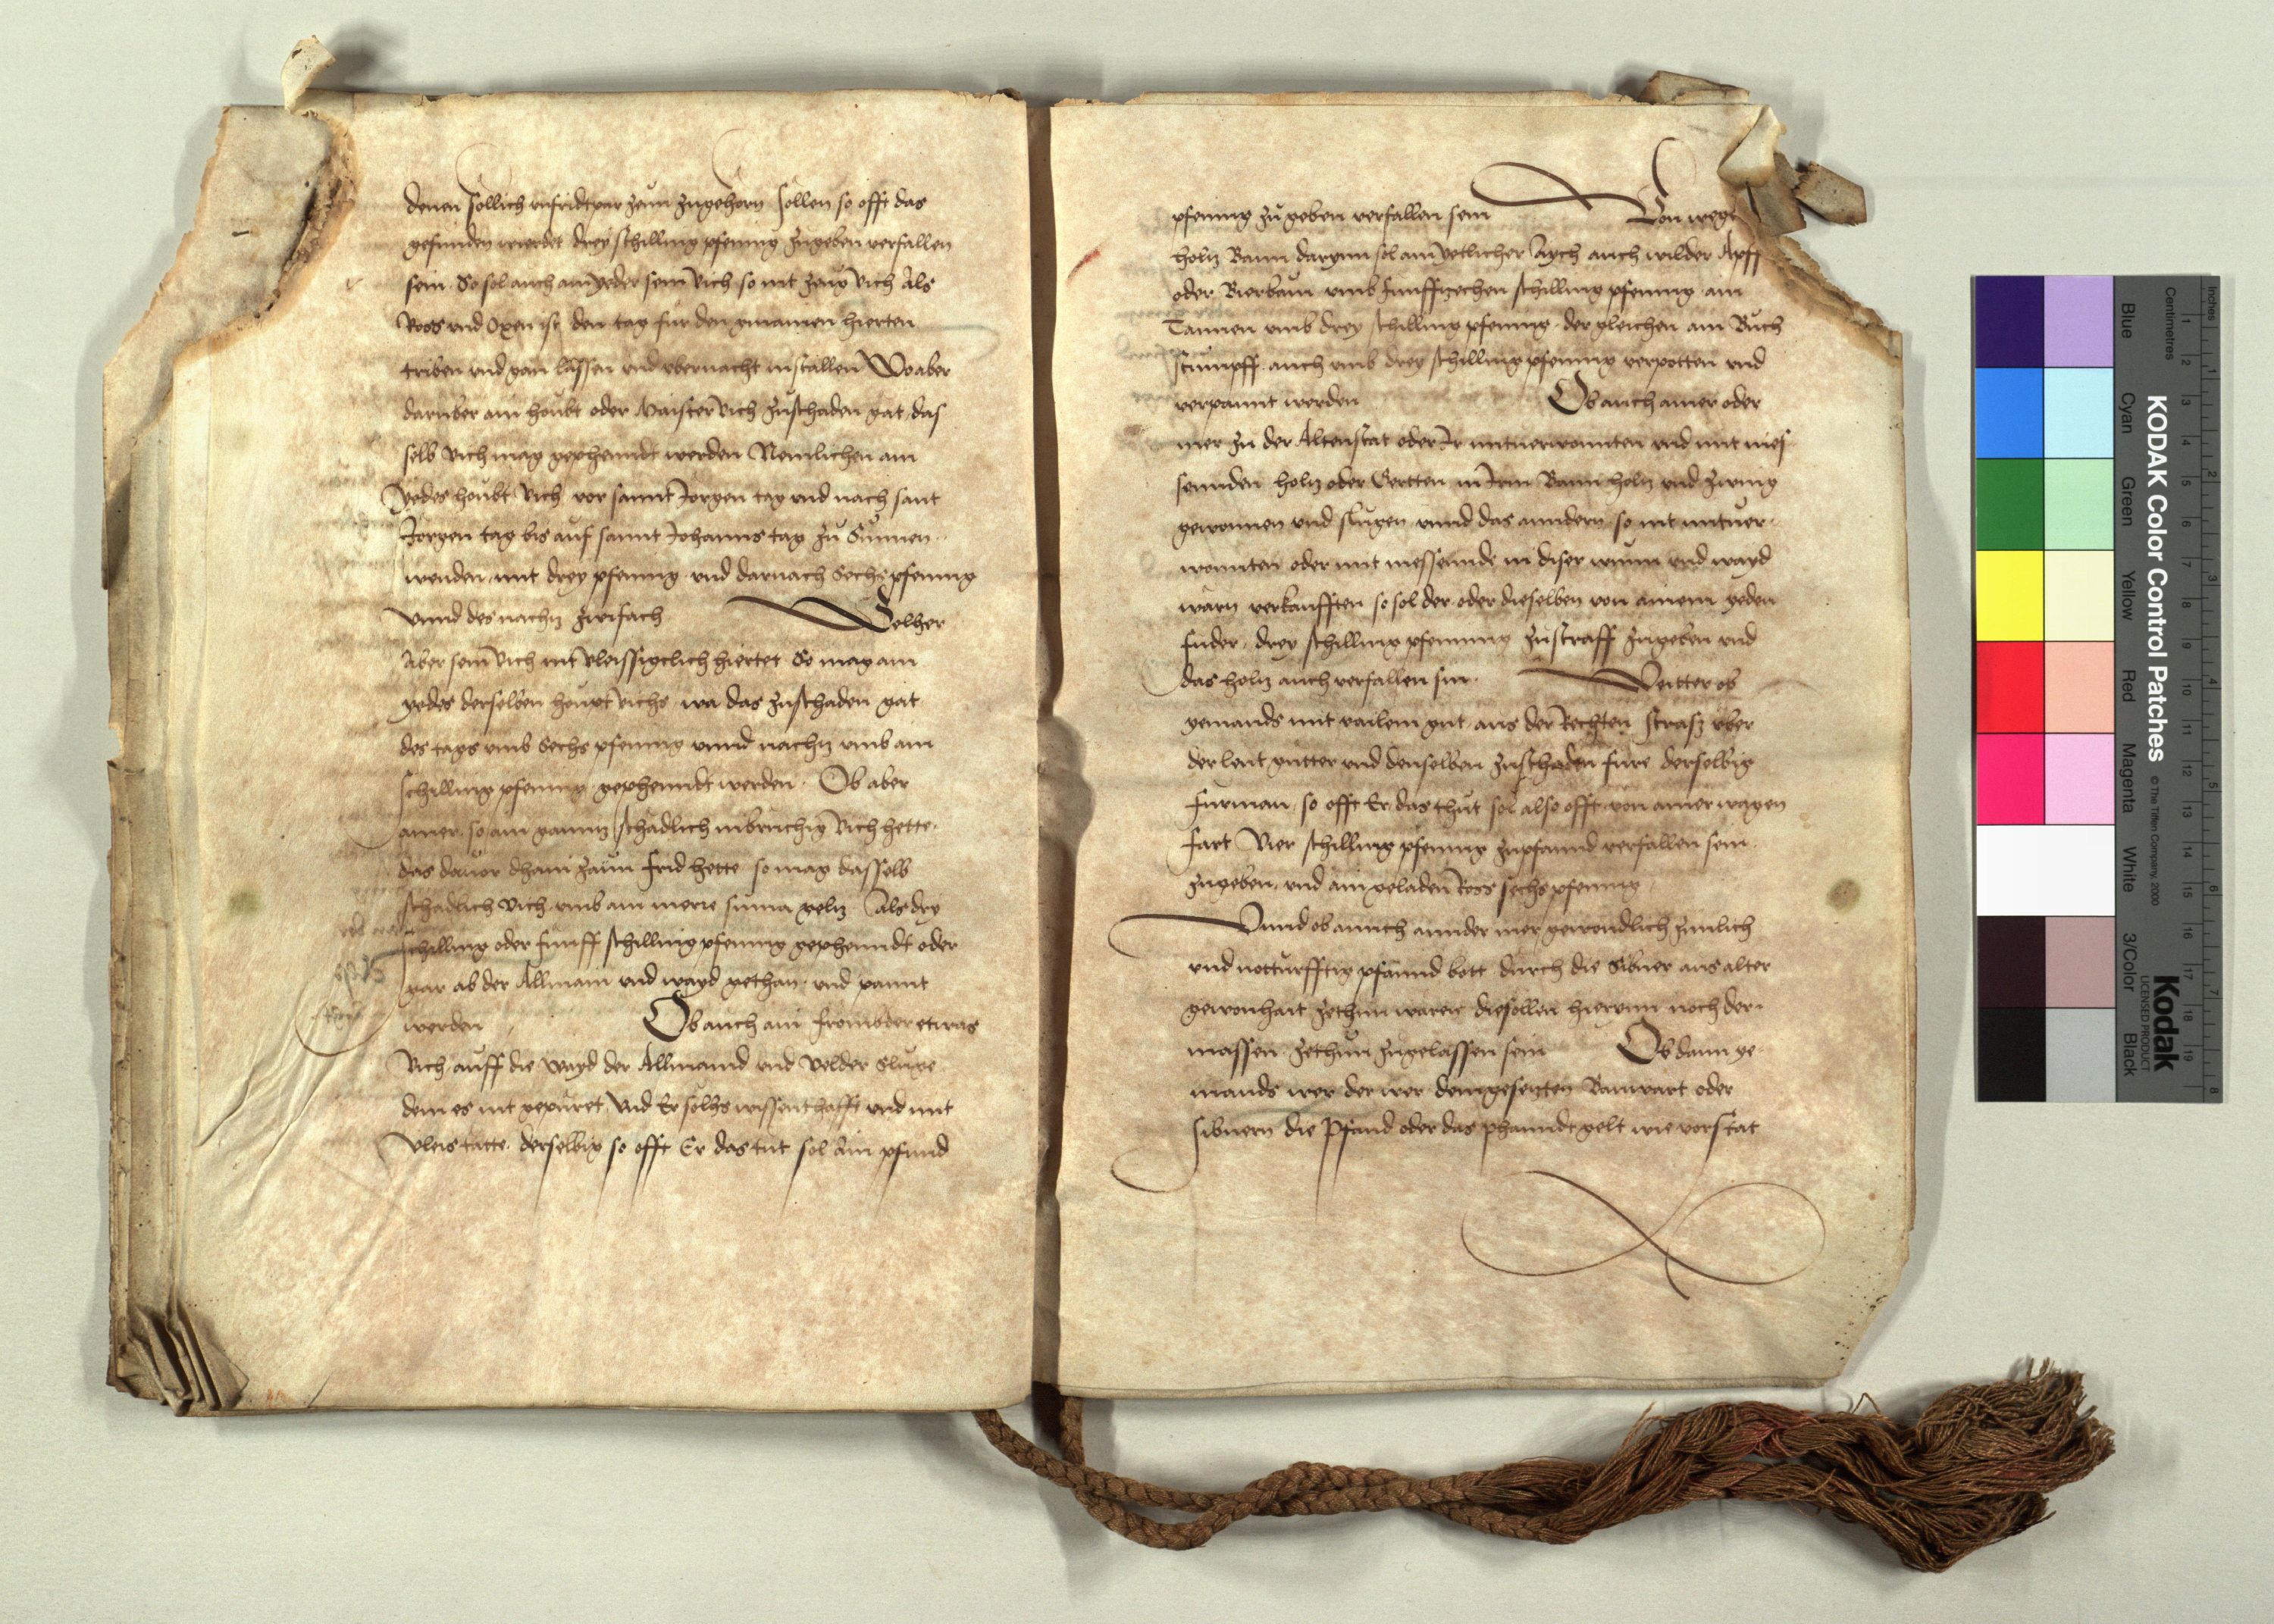 denen sollich unfridtpar zeun zugehorn sollen so offt das
gefunden wierdet drey schilling pfening zugeben verfallen
sein. So sol auch ain yeder sein vich so nit zeug vich als
Ross und Oxen ist den tag für den gmainen hierten
triben und gan lassen und ubernacht installen Wo aber
daruber ain houbt oder Maister vich zuschaden gat, das
selb vich mag gephenndt werden Nemlichen ain
yedes houbt vich vor sannt Jorgen tag und nach sant
Jorgen tag bis auf sannt Johanns tag zu Sunnen
wenden, mit drey pfening und darnach Sechs pfening
unnd des nachtz zwifach Welher
Aber sein vich nit vleissigclich hiertet So mag ain
yedes derselben houpt vichs wa das zuschaden gat
des tags umb Sechs pfening unnd nachtz umb ain
schilling pfening gephenndt werden. Ob aber
ainer so ain ganntz schadlich inbruchig vich hette.
das davor dhain zaun frid hette so mag dasselb
schadlich vich umb ain merre suma geltz Als dry
schilling oder funff schilling pfening gephenndt oder
gar ab der Allmain und wayd gethan und pannt
werden Ob auch ain fromder etwas
vich auff die wayd der Allmaind und velder Sluge
dem es nit gepuret und Er solhs wissenthafft und mit
vleis tatte. derselbig so offt Er das tut sol ain pfund
pfening zu geben verfallen sein Von wege
holtz Bann darynn sol ain yetlicher Aych auch wilder Apff
oder Bierbaum umb funffzechen schilling pfening ain
Tannen umb drey schilling pfening. der gleichen ain Buch
stumpff auch umb drey schilling pfening verpotten und
verpannt werden Ob auch ainer oder
mer zu der Altenstat oder Ir mituerwonnten und mit nies
sennden holtz oder Gertten in Irm Bann holtz und zwing
gewonnen und slugen unnd das anndern so nit mituer
wonnten oder mit niessennde in diser wunn und wayd
warn verkaufften so sol der oder dieselben von ainem yeden
fuder. drey schilling pfenning zu straff zugeben und
das holtz auch verfallen sin. Weitter ob
yemands mit vailem gut aus der Rechten strass uber
der leut gutter und denselben zuschaden fure derselbig
furman, so offt Er das thut sol also offt von ainer wagen
fart Vier schilling pfening zupfannd verfallen sein
zugeben, und ain geladen Ross sechs pfening
Unnd ob annich annder mer gewondlich zimlich
und notturfftig pfannd bott durch die Sibner aus alter
gewonhait zethun waren die sollen hierinn noch der
massen zethun zugelassen sein Ob dann ye
mands wer der wer dem gesetzten Banwart oder
sibnern die Pfand oder das phanndt gelt wie vorstat
KODAK Color Control Patches
© The Tiffen Company, 2000
Kodak
LICENSED PRODUCT
Inches
Centimetres
Blue
Cyan
Green
Yellow
Red
Magenta
White
3/Color
Black